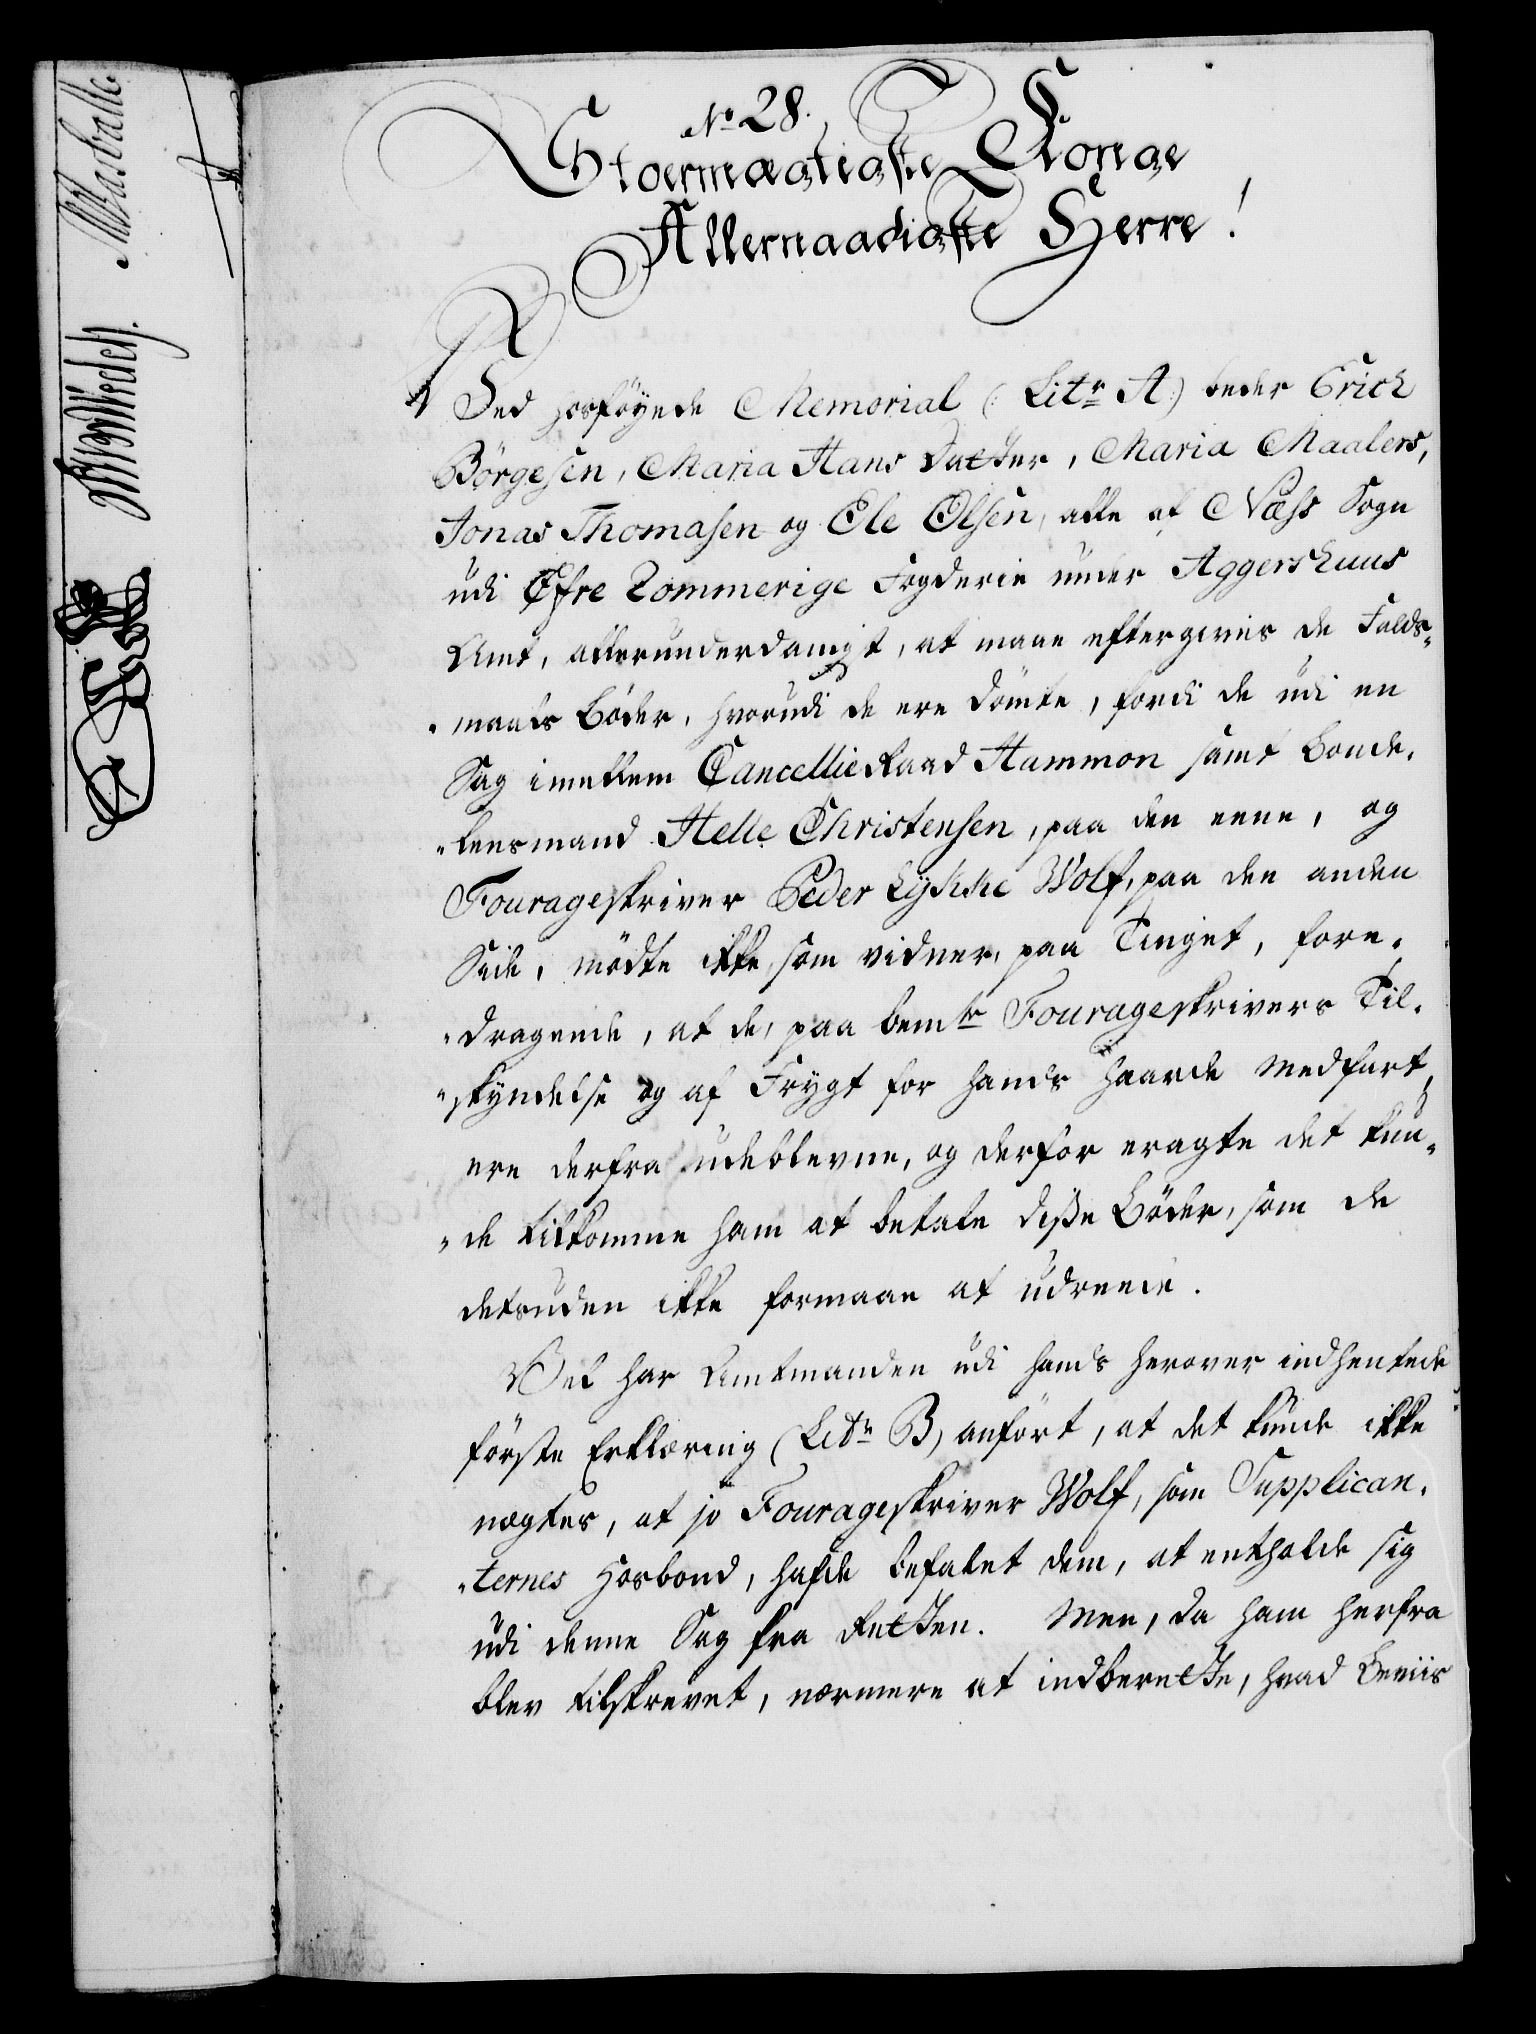 No 28.
Stoermægtigste Konge
Allernaadigste Herre!
Ved hosföyede Memorial (: Litr A) beder Erich
Börgesen, Maria Hans Datter, Maria Maalers,
Jonas Thomasen og Ole Olsen, alle af Næss Sogn
udi Öfre Rommerige Fogderie under Aggershuus
Amt, allerunderdanigst, at maae eftergives de Falds-
-maals Böder, hvorudi de ere dömte, fordi de udi en
Sag imellem CancellieRaad Hammon samt Bonde-
-lensmand Helle Christensen, paa den eene, og
Fourageskriver Peder Lykke Wolf, paa den anden
Side, mödte ikke, som vidner, paa Tinget, fore-
-dragende, at de, paa bemte Fourageskrivers Til-
-skyndelse og af Frygt for hands haarde Medfart,
ere derfra udeblevne, og derfor eragte det kun-
-de tilkomme ham at betale disse Böder, som de
desuden ikke formaae at udreede.
Vel har Amtmanden udi hands herover indhentede
förste Erklæring (Litr B) anfört, at det kunde ikke
nægtes, at jo Fourageskriver Wolf, som Supplican-
-ternes Hosbond, hafde befalet dem, at entholde sig
udi denne Sag fra Retten. Men, da ham herfra
blev tilskrevet, nærmere at indberette, hvad Beviis